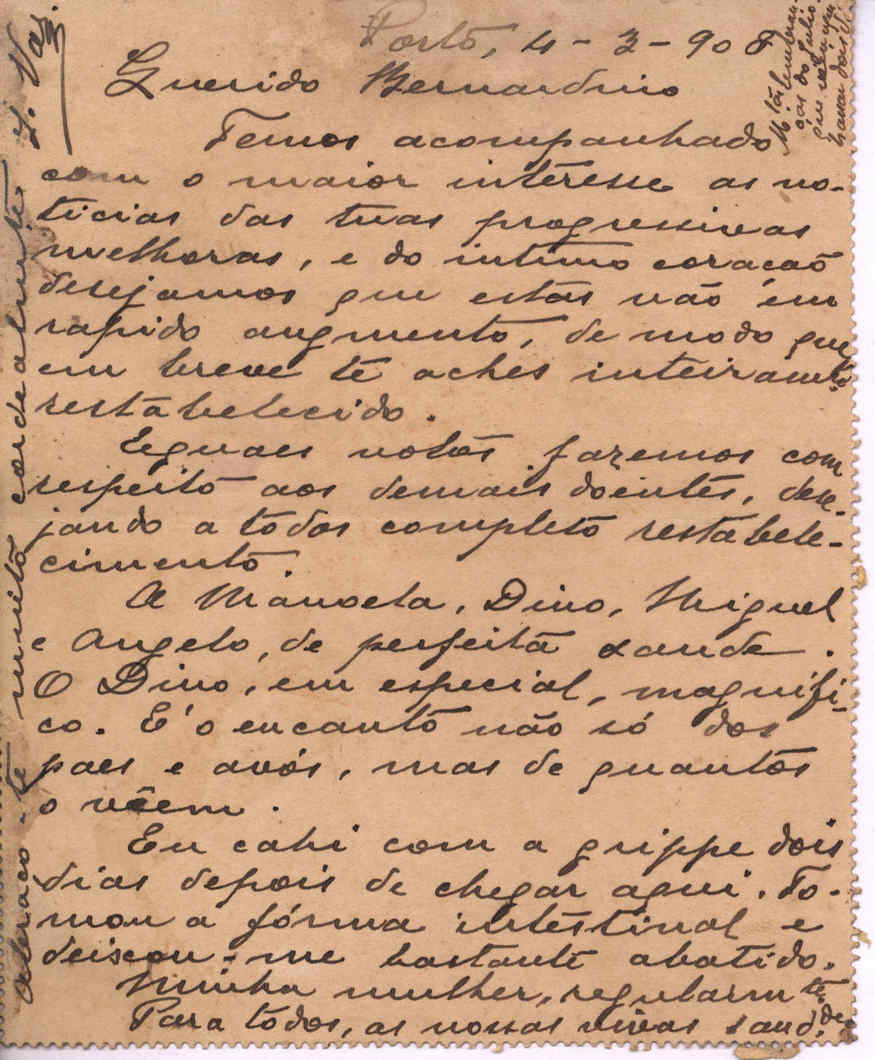 Porto, 4-3-908
Querido Bernardino
Temos acompanhado
com o maior interesse as no-
ticias das tuas progressivas
melhoras, e do intimo coração
desejamos que estas vão em
rapido augmento, de modo que
em breve te aches inteiramte
restabelecido.
Eguaes votos fazemos com
respeito aos demais doentes, dese-
jando a todos completo restabele-
cimento.
A Manoela, Dino, Miguel
e Angelo, de perfeita saude.
O Dino, em especial, magnifi-
co. E' o encanto não só dos
paes e avós, mas de quantos
o vêem.
Eu cahi com a grippe dois
dias depois de chegar aqui. To-
mou a fórma intestinal e
deixou-me bastante abatido.
Minha mulher, regularmte
Para todos, as nossas vivas saudde
abraço-te muito cordealmente
Mtas lembran-
ças do Julio
que